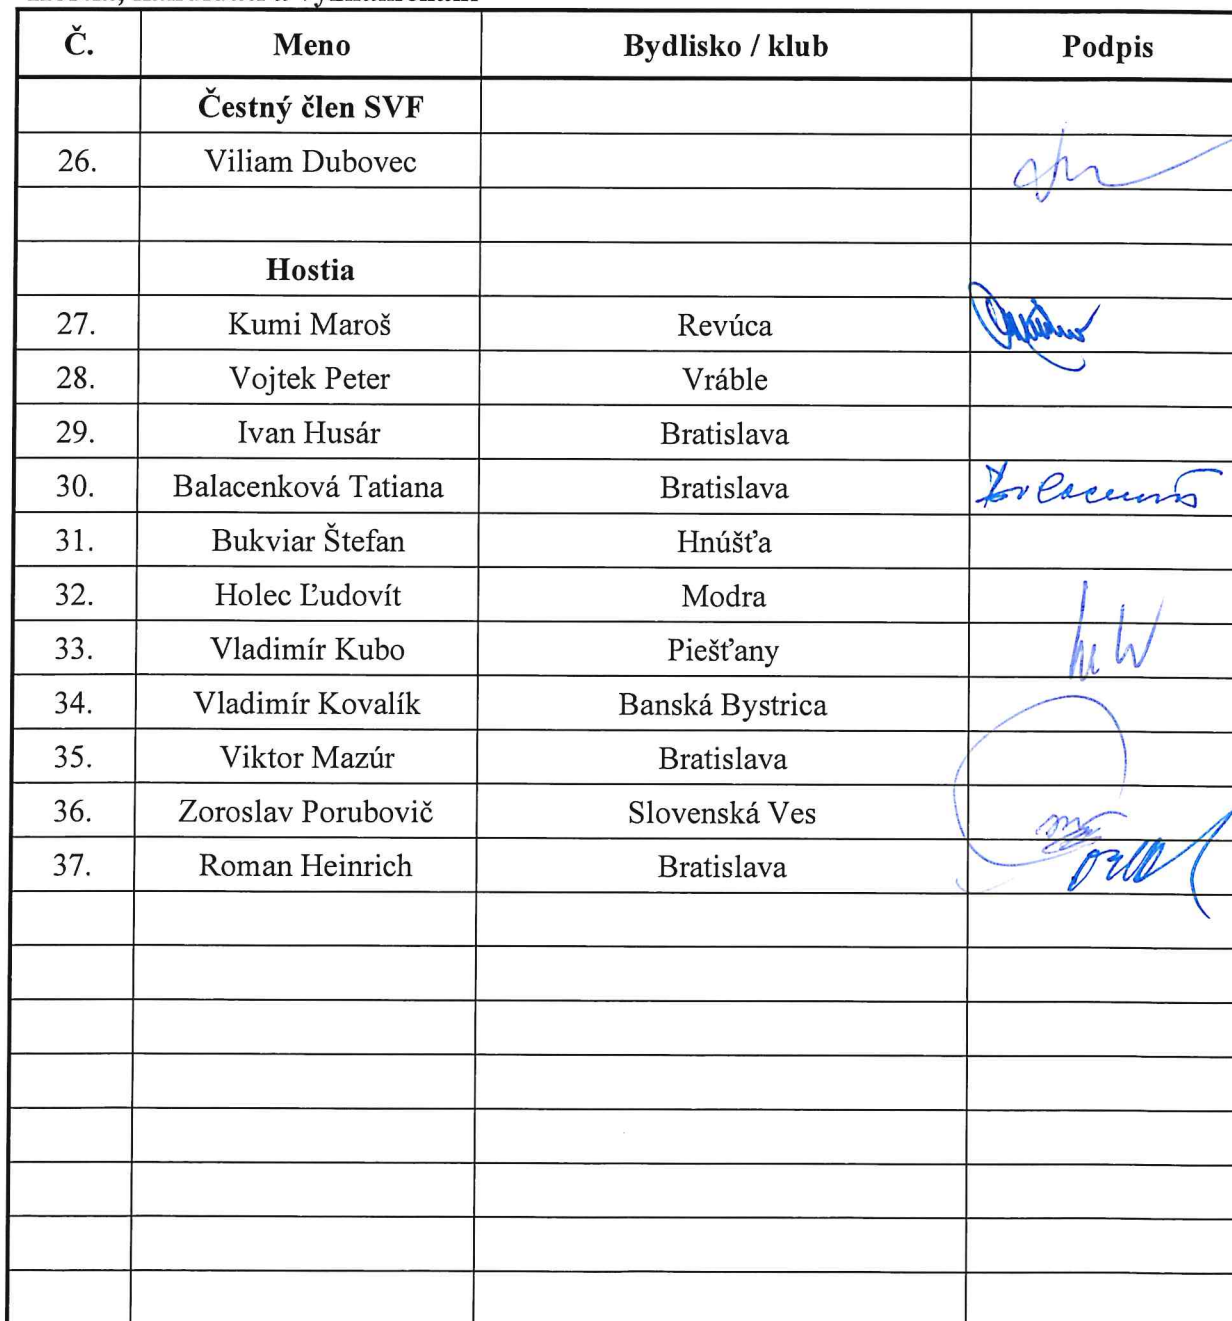 Č. Meno Bydlisko / klub Podpis
Čestný člen SVF
26. Viliam Dubovec
Hostia
27. Kumi Maroš Revúca
28. Vojtek Peter Vráble
29. Ivan Husár Bratislava
30. Balacenková Tatiana Bratislava
31. Bukviar Štefan Hnúšťa
32. Holec Ľudovít Modra
33. Vladimír Kubo Piešťany
34. Vladimír Kovalík Banská Bystrica
35. Viktor Mazúr Bratislava
36. Zoroslav Porubovič Slovenská Ves
37. Roman Heinrich Bratislava